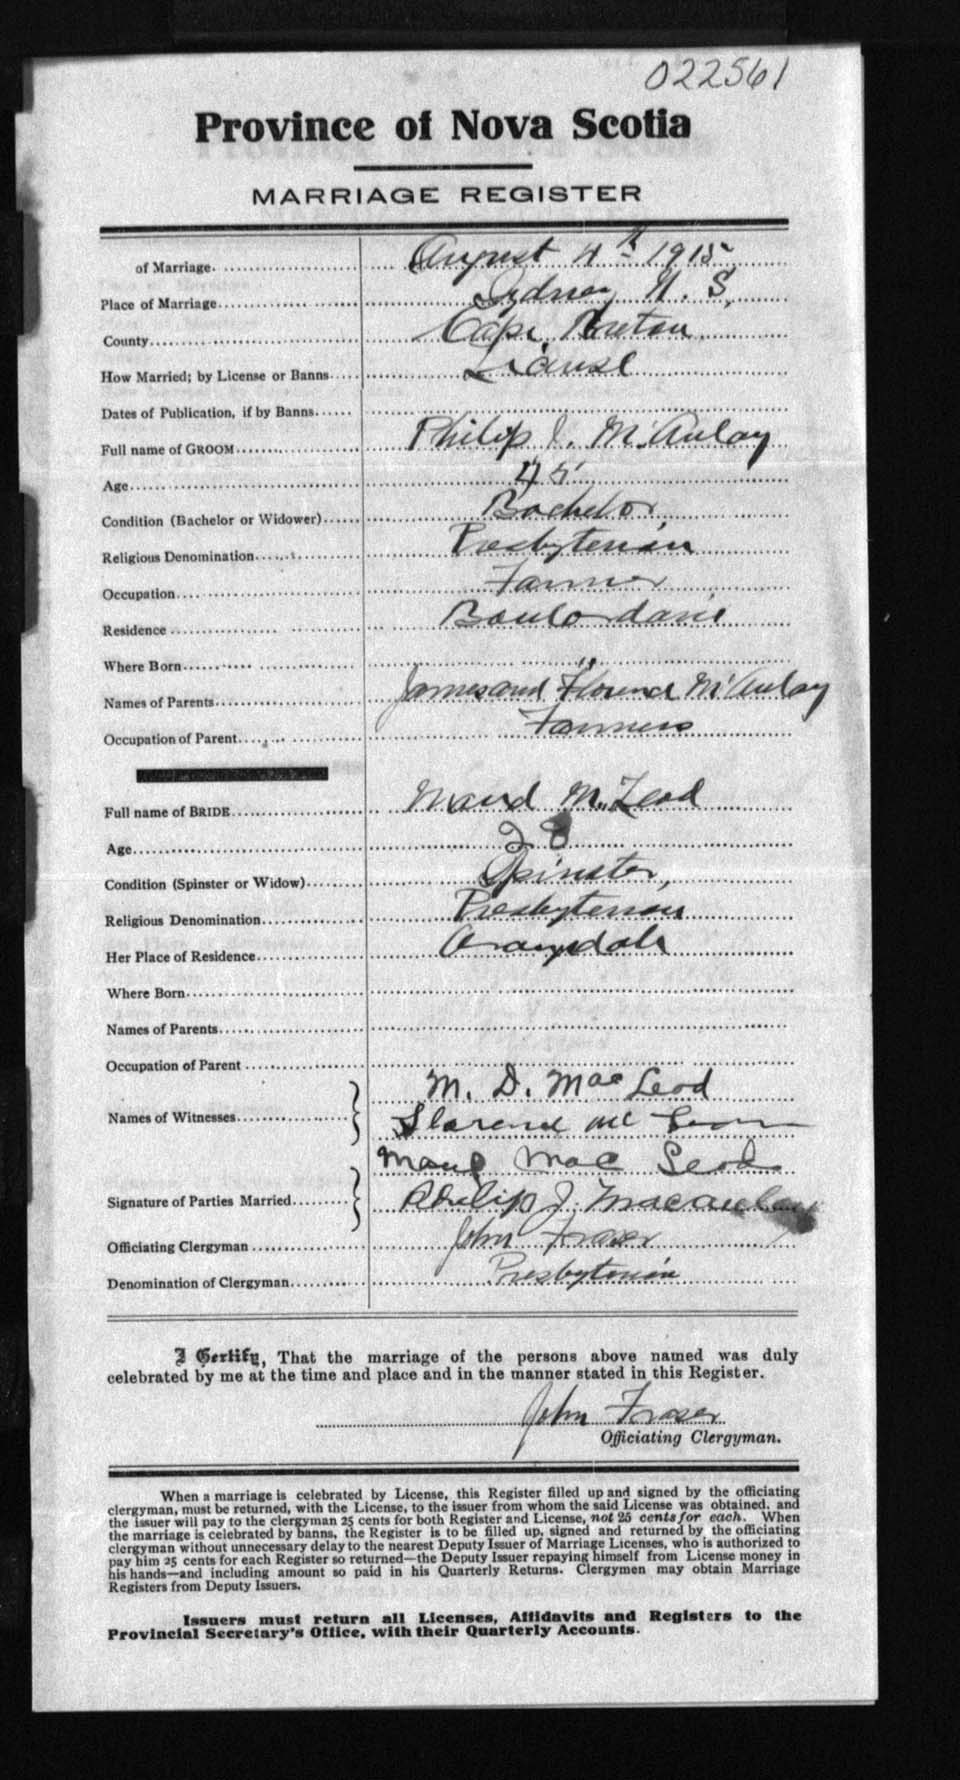 022561
Province of Nova Scotia
MARRIAGE REGISTER
of Marriage. August 4th 1915
Place of Marriage Sydney N. S.
County Cape Breton
How Married; by License or Banns License
Dates of Publication, if by Banns
Full name of GROOM Philip J. McAulay
Age 45
Condition (Bachelor or Widower) Bachelor
Religious Denomination Presbyterian
Occupation Farmer
Residence Boulardarie
Where Born "
Names of Parents James and Florence McAulay
Occupation of Parent Farmers
Full name of BRIDE Maud McLeod
Age 28
Condition (Spinster or Widow) Spinster,
Religious Denomination Presbyterian
Her Place of Residence Orangedale
Where Born
Names of Parents
Occupation of Parent
M. D. MacLeod
Names of Witnesses
Florence Mc
Maud Mac Leod
Signature of Parties Married Philip J. Macaulay
Officiating Clergyman John Fraser
Denomination of Clergyman Presbyterian
I Certify, That the marriage of the persons above named was duly
celebrated by me at the time and place and in the manner stated in this Register.
John Fraser
Officiating Clergyman.
When a marriage is celebrated by License, this Register filled up and signed by the officiating
clergyman, must be returned, with the License, to the issuer from whom the said License was obtained, and
the issuer will pay to the clergyman 25 cents for both Register and License, not 25 cents for each. When
the marriage is celebrated by banns, the Register is to be filled up, signed and returned by the officiating
clergyman without unnecessary delay to the nearest Deputy Issuer of Marriage Licenses, who is authorized to
pay him 25 cents for each Register so returned—the Deputy Issuer repaying himself from License money in
his hands—and including amount so paid in his Quarterly Returns. Clergymen may obtain Marriage
Registers from Deputy Issuers.
Issuers must return all Licenses, Affidavits and Registers to the
Provincial Secretary's Office, with their Quarterly Accounts.